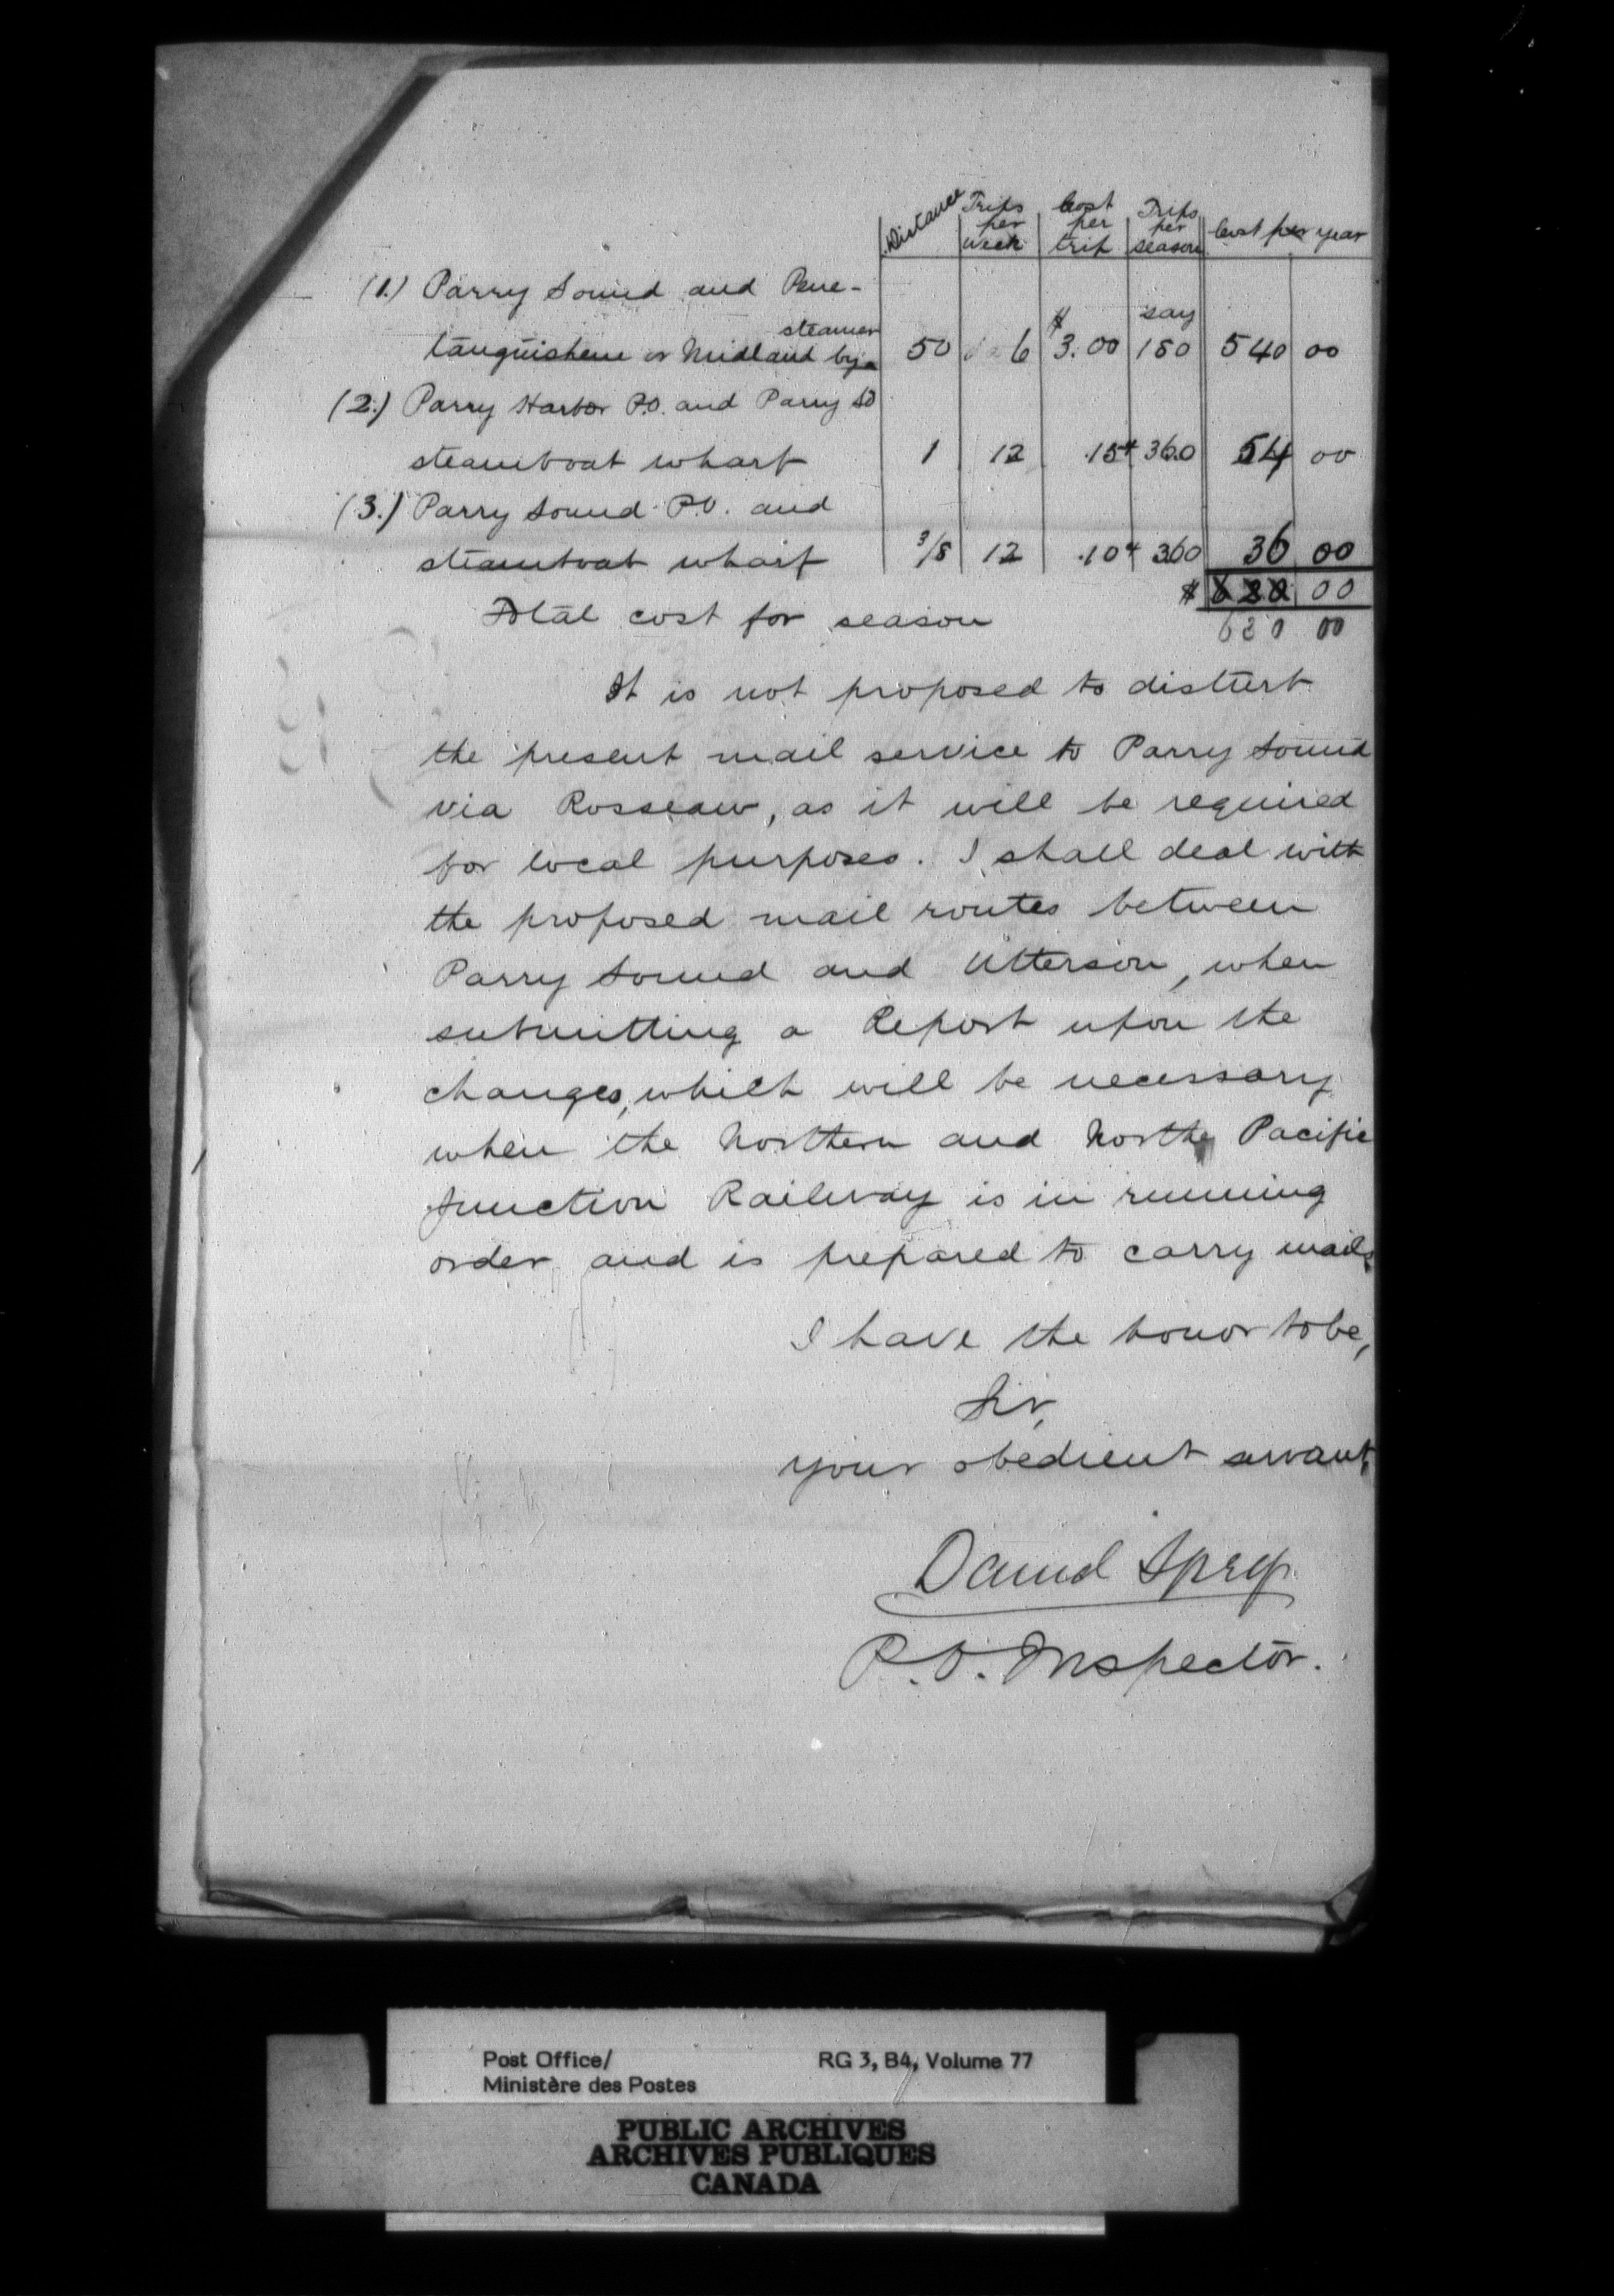 Distance Trips per week Cost per trip Trips per season Cost per year
(1.) Parry Sound and Pene-
steamer
tanguishene or Midland by 50 6 $3.00 say 180 540 00
(2.) Parry Harbor P.O. and Parry Sd
steamboat wharf 1 12 .15¢ 360 54 00
(3.) Parry Sound P.O. and
steamboat wharf 3/8 12 .10¢ 360 36 00
$ 00
Total cost for season 630 00
It is not proposed to disturb
the present mail service to Parry Sound
via Rosseau, as it will be required
for local purposes. I shall deal with
the proposed mail routes between
Parry Sound and Utterson, when
submitting a Report upon the
changes, which will be necessary
when the Northern and North Pacific
Junction Railway is in running
order and is prepared to carry mails.
I have the honor to be,
Sir,
your obedient servant,
Daniel Spry
P.O. Inspector.
Post Office/ RG 3, B4, Volume 77
Ministère des Postes
PUBLIC ARCHIVES
ARCHIVES PUBLIQUES
CANADA